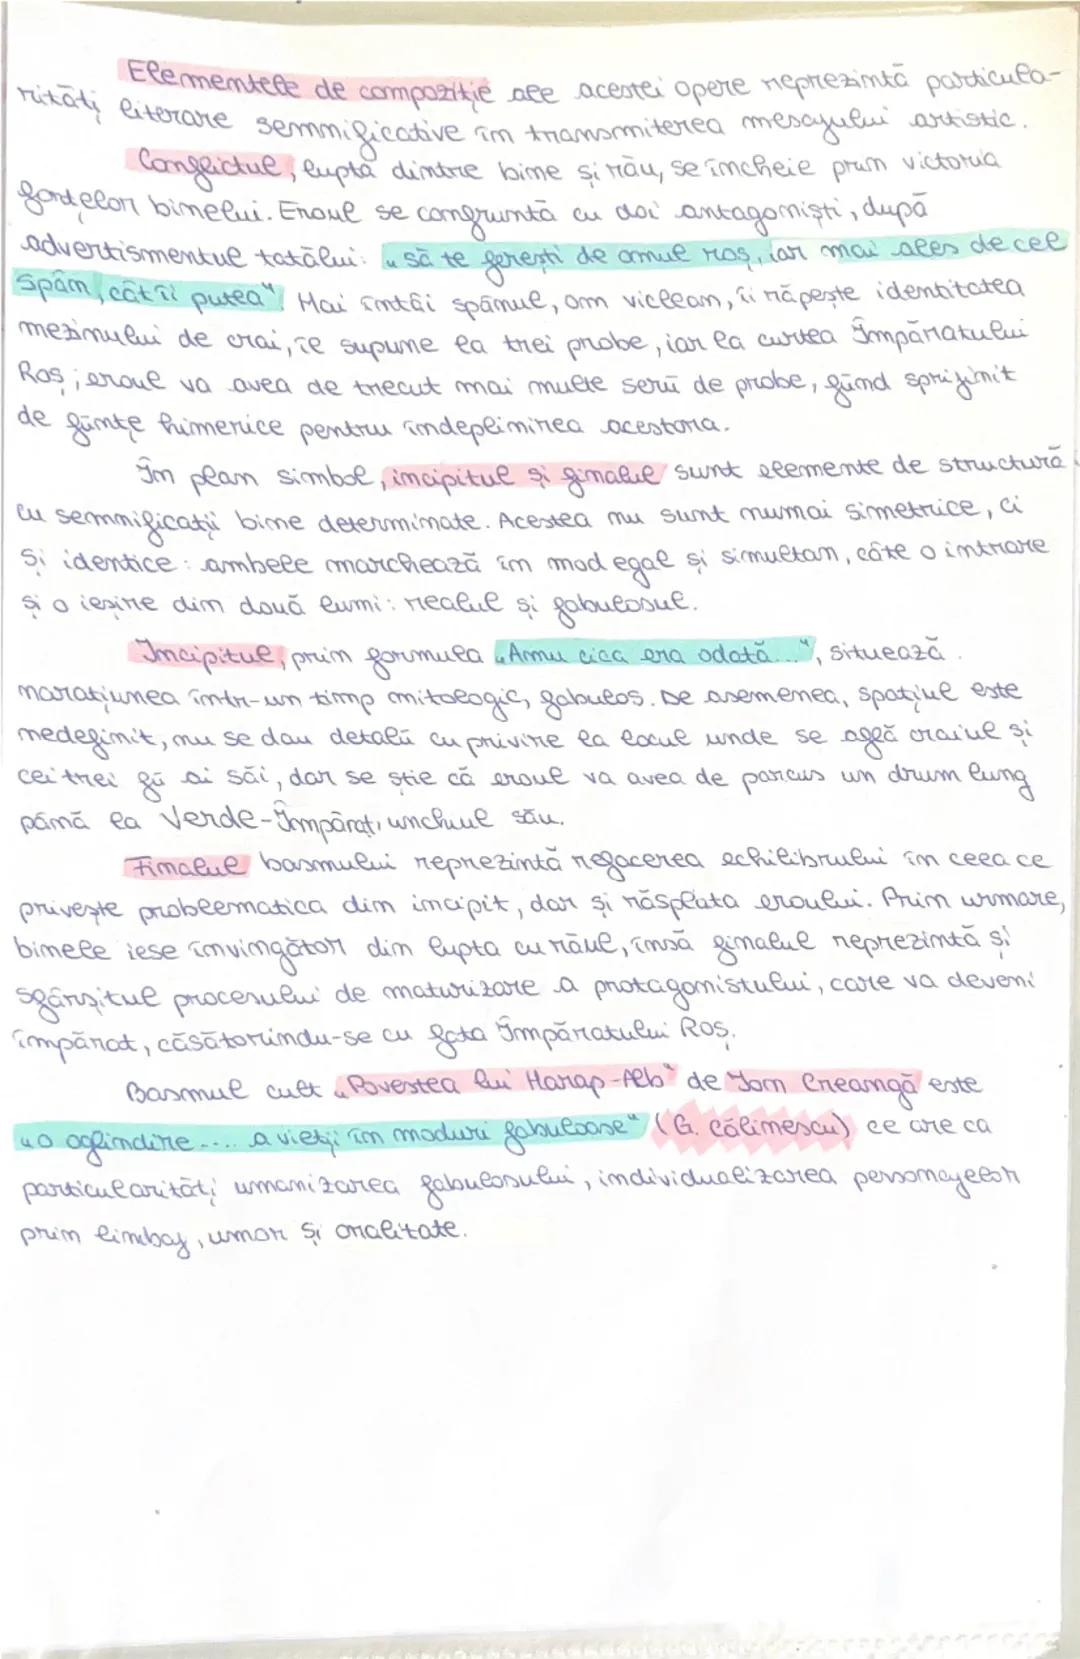 Elementele de compoziție ale acestei opere reprezintă particula-
rități literare semnificative în transmiterea mesajului artistic.
Conflictul, lupta dintre bine și rău, se încheie prin victoria
forțelor binelui. Eroul se confruntă cu doi antagoniști, după
advertismentul tatălui: „să te ferești de omul roș, iar mai ales de cel
spân, cât îi putea". Mai întâi spânul, om viclean, îi răpește identitatea
mezinului de crai, îl supune la trei probe, iar la curtea Împăratului
Roș, eroul va avea de trecut mai multe serii de probe, fiind sprijinit
de ființe himerice pentru îndeplinirea acestora.
În plan simbol, incipitul și finalul sunt elemente de structură
cu semnificații bine determinate. Acestea nu sunt numai simetrice, ci
și identice: ambele marchează în mod egal și simultan, câte o intrare
și o ieșire din două lumi: realul și fabulosul.
Incipitul, prin formula „Amu cica era odată...", situează
narațiunea într-un timp mitologic, fabulos. De asemenea, spațiul este
nedefinit, nu se dau detalii cu privire la locul unde se află craiul și
cei trei fii ai săi, dar se știe că eroul va avea de parcus un drum lung
până la Verde-Împărat, unchiul său.
Finalul basmului reprezintă refacerea echilibrului în ceea ce
privește problematica din incipit, dar și răsplata eroului. Prin urmare,
binele iese învingător din lupta cu răul, însă finalul reprezintă și
sfârșitul procesului de maturizare a protagonistului, care va deveni
împărat, căsătorindu-se cu fata Împăratului Roș.
Basmul cult „Povestea lui Harap-Alb" de Ion Creangă este
„o oglindire .... a vieții în moduri fabuloase" (G. Călinescu) ce are ca
particularități umanizarea fabulosului, individualizarea personajelor
prin limbaj, umor și oralitate.